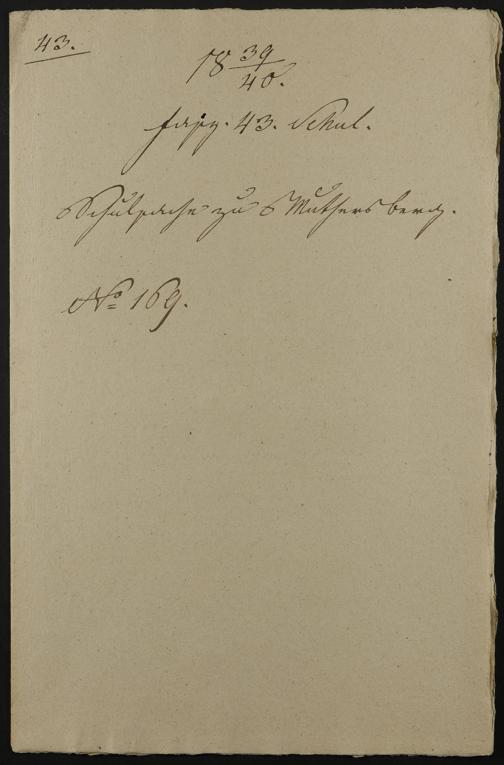 43.
18 39/40.
Fasz. 43. Schul.
Schulsache zu Muthersberg.
No 169.